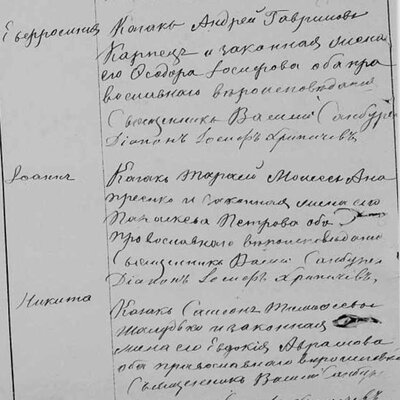 Евфросинія
Казакъ Андрей Гавриловъ
Карпецъ и законная жена
его Ѳеодора Іосифова оба пра
вославнаго вѣроисповѣданія
Священникъ Василій
Діаконъ Іосифъ
Іоаннъ
Казакъ Тарасій Моисеевъ
и законная жена его
Параскева Петрова оба
православнаго вѣроисповѣданія
Священникъ Василій
Діаконъ Іосифъ
Никита
Казакъ Самсонъ Тимофеевъ
и законная
жена его Евдокія Аврамова
оба православнаго вѣроисповѣд
Священникъ Василій